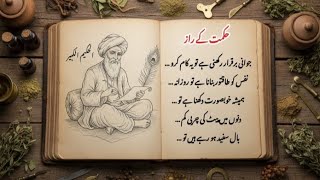 حکمت کے راز
الحکیم الکبیر
جوانی برقرار رکھنی ہے تو یہ کام کرو...
نفس کو طاقتور بنانا ہے تو روزانہ...
ہمیشہ خوبصورت دکھنا ہے تو...
دنوں میں پیٹ کی چربی کم...
بال سفید ہو رہے ہیں تو...